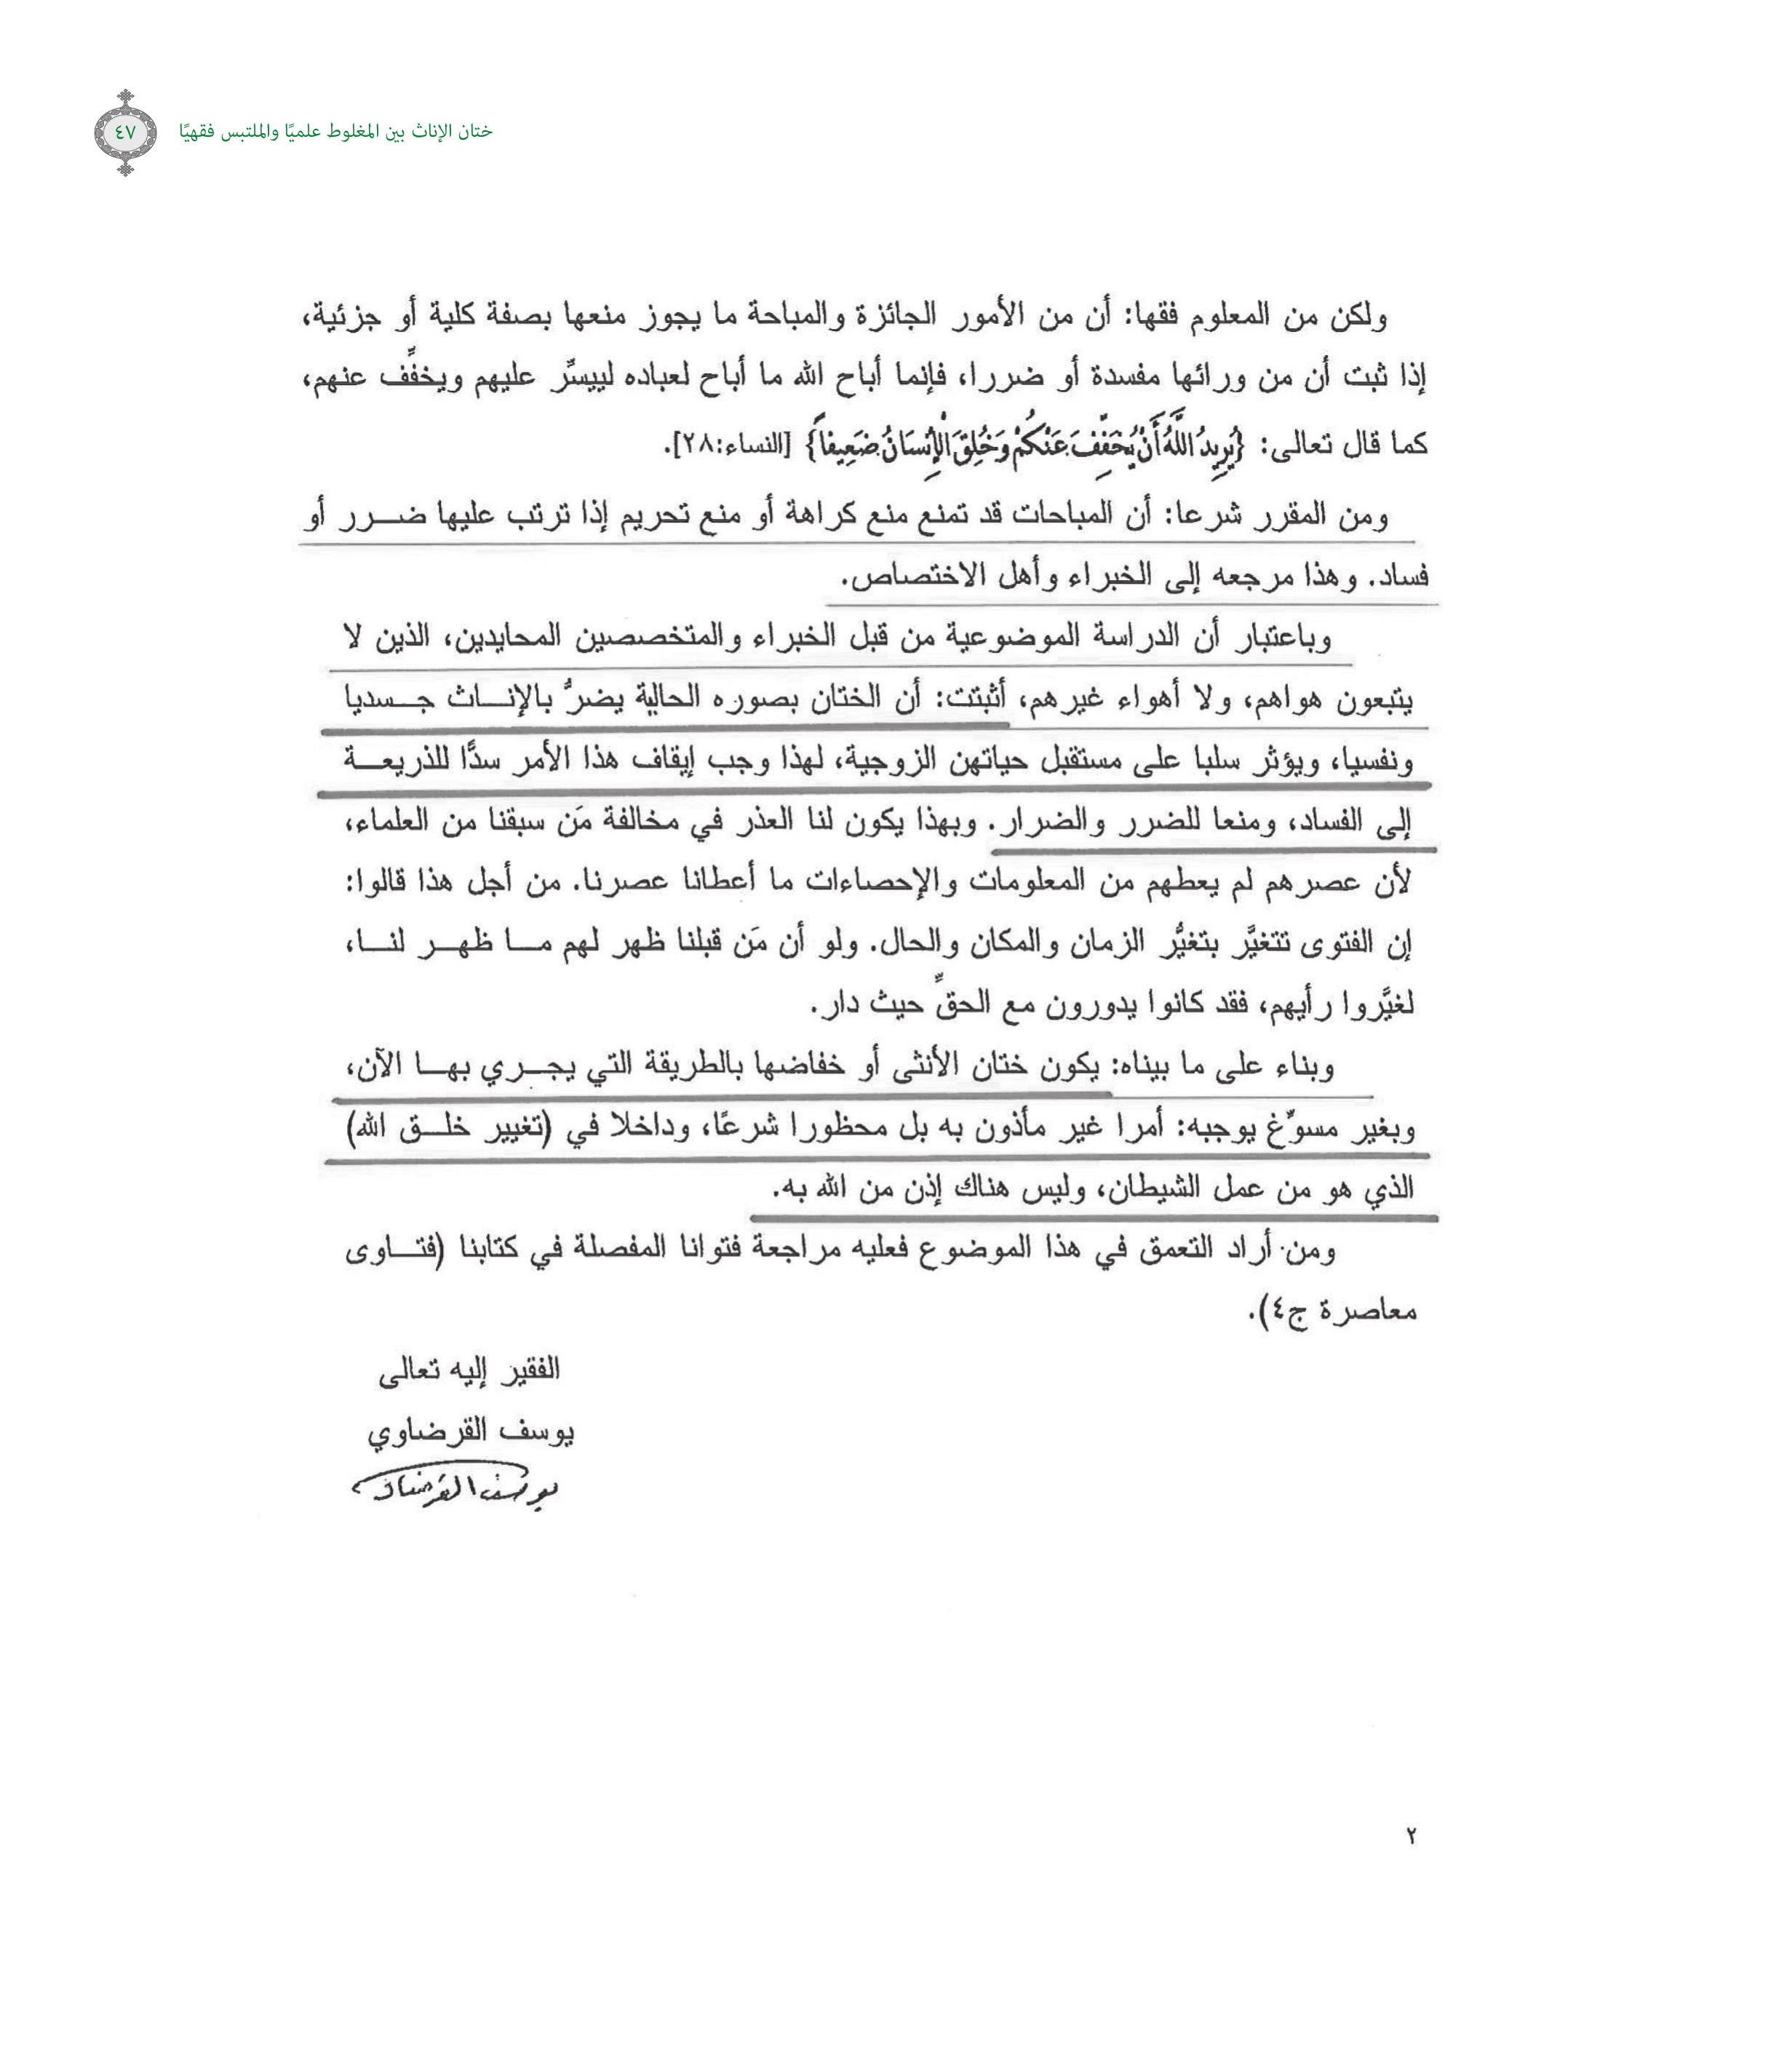 ختان الإناث بين المغلوط علميًا والملتبس فقهيًا
٤٧
ولكن من المعلوم فقها: أن من الأمور الجائزة والمباحة ما يجوز منعها بصفة كلية أو جزئية،
إذا ثبت أن من ورائها مفسدة أو ضررا، فإنما أباح الله ما أباح لعباده لييسِّر عليهم ويخفِّف عنهم،
كما قال تعالى: {يُرِيدُ اللَّهُ أَنْ يُخَفِّفَ عَنْكُمْ وَخُلِقَ الْإِنْسَانُ ضَعِيفاً} [النساء:٢٨].
ومن المقرر شرعا: أن المباحات قد تمنع منع كراهة أو منع تحريم إذا ترتب عليها ضرر أو
فساد. وهذا مرجعه إلى الخبراء وأهل الاختصاص.
وباعتبار أن الدراسة الموضوعية من قبل الخبراء والمتخصصين المحايدين، الذين لا
يتبعون هواهم، ولا أهواء غيرهم، أثبتت: أن الختان بصوره الحالية يضرُّ بالإناث جسديا
ونفسيا، ويؤثر سلبا على مستقبل حياتهن الزوجية، لهذا وجب إيقاف هذا الأمر سدًّا للذريعة
إلى الفساد، ومنعا للضرر والضرار. وبهذا يكون لنا العذر في مخالفة مَن سبقنا من العلماء،
لأن عصرهم لم يعطهم من المعلومات والإحصاءات ما أعطانا عصرنا. من أجل هذا قالوا:
إن الفتوى تتغيَّر بتغيُّر الزمان والمكان والحال. ولو أن مَن قبلنا ظهر لهم ما ظهر لنا،
لغيَّروا رأيهم، فقد كانوا يدورون مع الحقِّ حيث دار.
وبناء على ما بيناه: يكون ختان الأنثى أو خفاضها بالطريقة التي يجري بها الآن،
وبغير مسوِّغ يوجبه: أمرا غير مأذون به بل محظورا شرعًا، وداخلا في (تغيير خلق الله)
الذي هو من عمل الشيطان، وليس هناك إذن من الله به.
ومن أراد التعمق في هذا الموضوع فعليه مراجعة فتوانا المفصلة في كتابنا (فتاوى
معاصرة ج٤).
الفقير إليه تعالى
يوسف القرضاوي
يوسف القرضاوي
٢